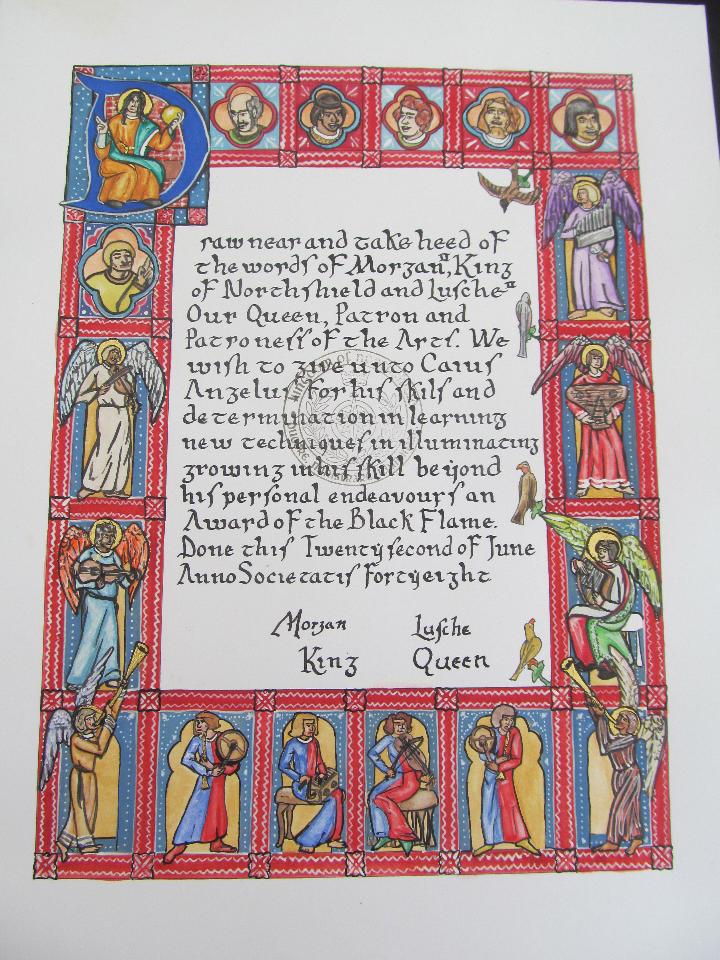 Draw near and take heed of
the words of Morgan II, King
of Northshield and Lusche II
Our Queen, Patron and
Patroness of the Arts. We
wish to give unto Caius
Angelus for his skils and
determination in learning
new techniques in illuminating
growing in his skill beyond
his personal endeavours an
Award of the Black Flame.
Done this Twenty second of June
Anno Societatis Forty eight
Morgan Lusche
King Queen